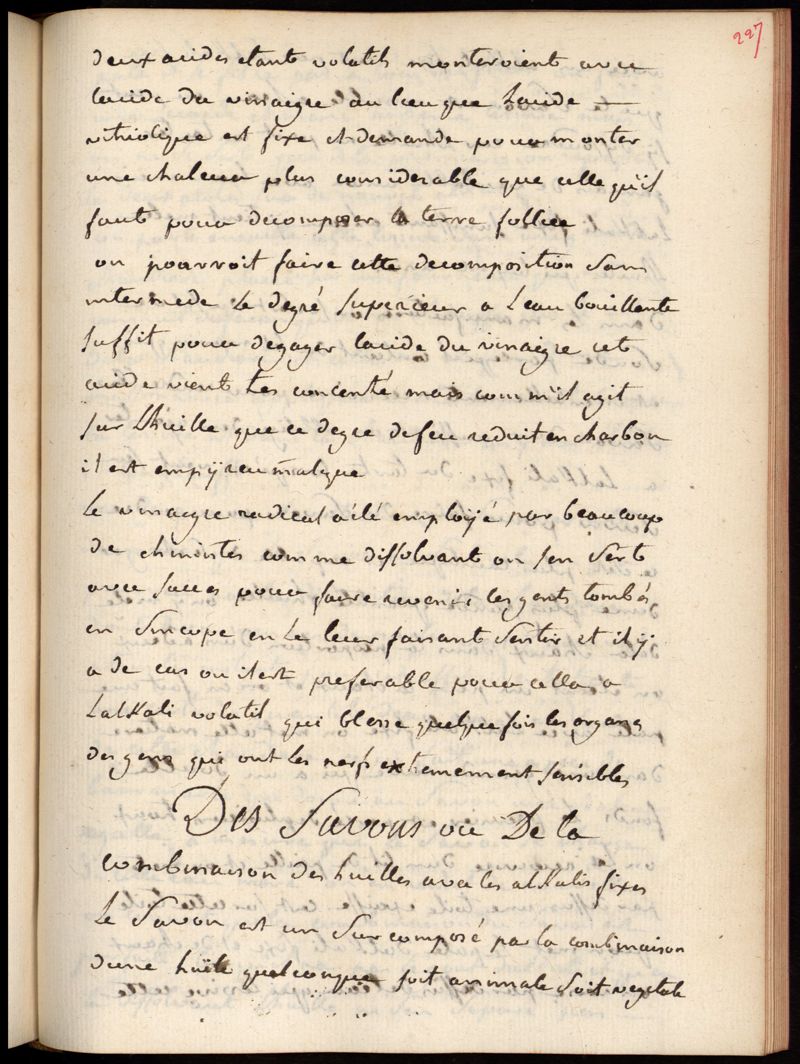 227
deux acides etant volatils monteroient avec
lacide du vinaigre au lieu que Lacide —
vitriolique est fixe et demande pour monter
une chaleur plus considerable que celle qu'il
faut pour decomposer la terre folliée
on pourroit faire cette decomposition sans
intermede Le degré superieur a Leau bouillante
suffit pour degager lacide du vinaigre cet
acide vient tres concentré mais comm'il agit
sur Lhuille que ce degre de feu reduit en charbon
il est empÿreumatique
Le vinaigre radical a été emploÿé par beaucoup
de chimistes comme dissolvant on sen sert
avec succes pour faire revenir les gents tombés
en Sincope en Le leur faisant Sentir et il ÿ
a de cas ou il est preferable pour cella a
LalKali volatil qui blesse quelque fois les organes
des gens qui ont les nerfs extremement sensibles
Des Savons ou De la
combinaison des huilles avec les alKalis fixes
Le Savon est un Surcomposé par la combinaison
dune huile quelconque soit animale Soit vegetale